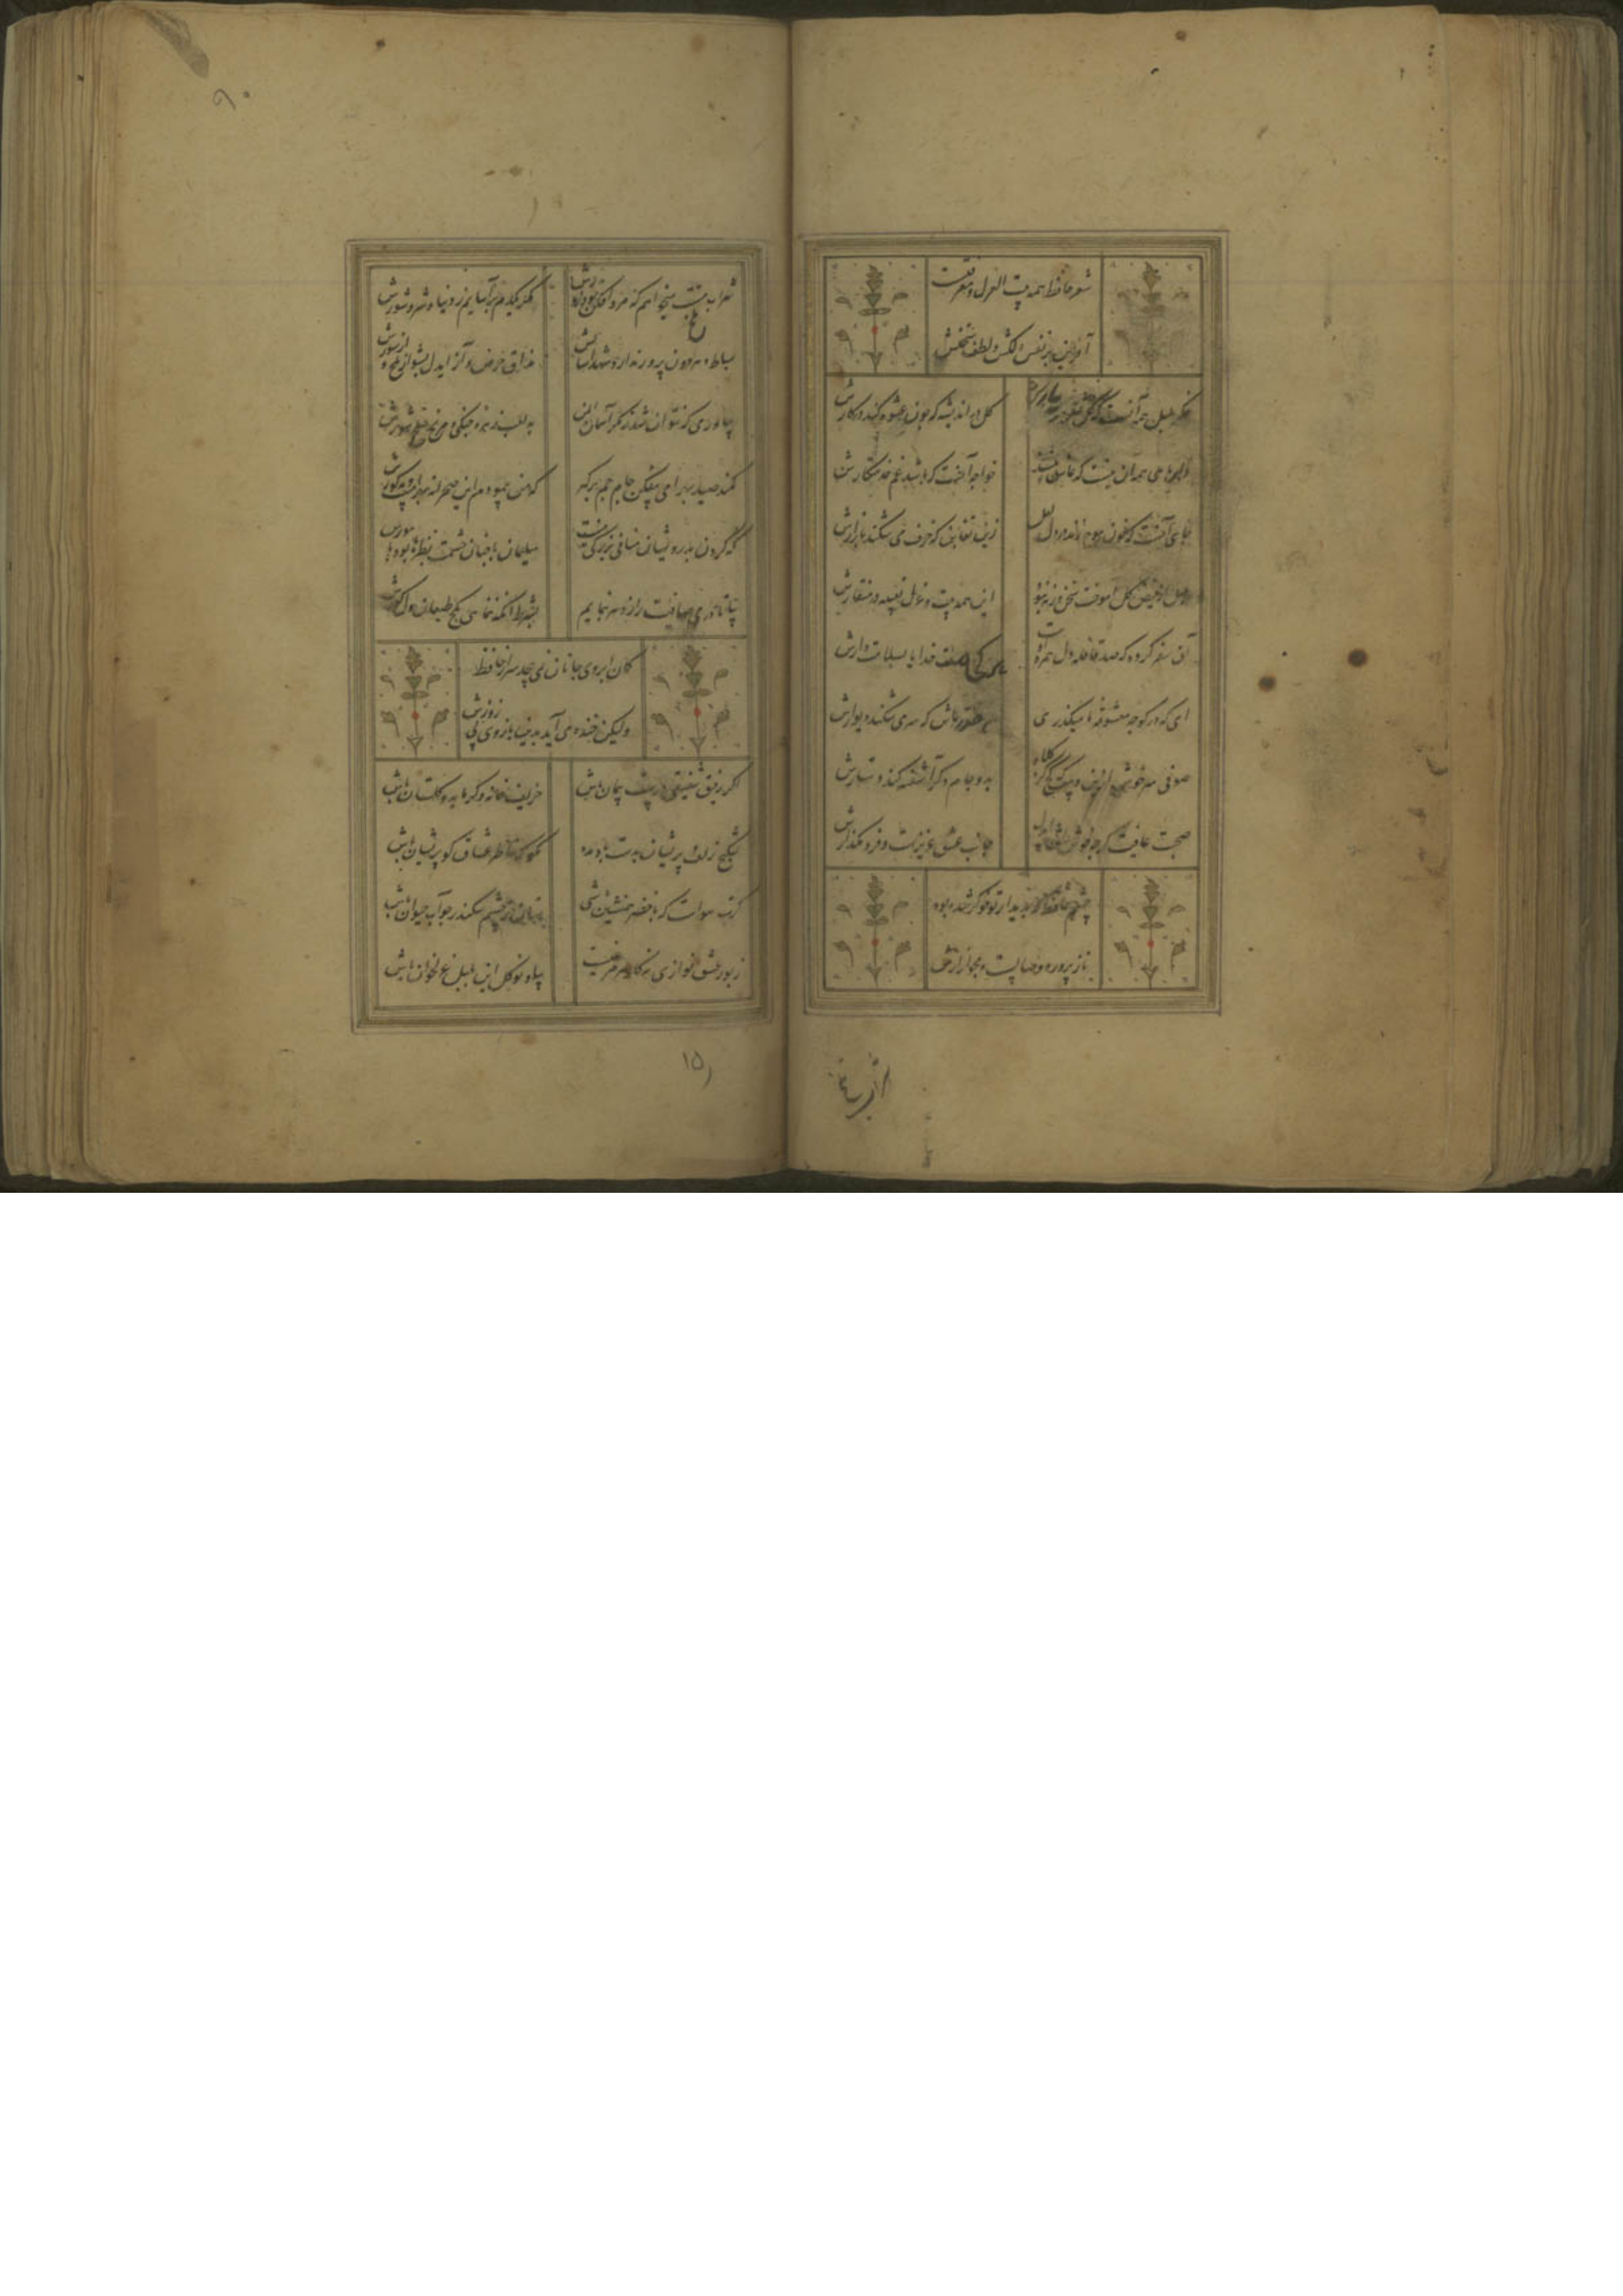 شعر حافظ همه بیت الغزل معرفت
آفرین بر نفس دلکش و لطف سخنش
فکر بلبل همه آنست که گل شد یارش
گل در اندیشه که چون عشوه کند در کارش
همه آن نیست که عاشق بکشند
خواجه آنست که باشد غم خدمتکارش
جای آنست که خون موج زند در دل لعل
زین تغابن که خزف می شکند بازارش
بلبل از فیض گل آموخت سخن ورنه نبود
این همه بیت و غزل تعبیه در منقارش
آن سفر کرده که صد قافله دل همره اوست
هر کجا هست خدایا بسلامت دارش
ای که در کوچه معشوقه ما میگذری
بر حذر باش که سر می شکند دیوارش
صوفی سرخوش ازین دست که کج کرد کلاه
بدو جام دگر آشفته کند دستارش
صحبت عافیت گرچه خوش افتاد ای دل
جانب عشق عزیزست فرو مگذارش
حافظ که بدیدار تو خوگر شده بود
ناز پرورد وصالست مجو آزارش
اگر رفیق
۹۰
شراب تلخ میخواهم که مرد افکن بود زورش
مگر یکدم بر آسایم ز دنیا و شر و شورش
سماط دهر دون پرور ندارد شهد آسایش
مذاق حرص و آز ای دل بشو از تلخ و از شورش
بیاور می که نتوان شد ز مکر آسمان ایمن
به لعب زهره چنگی و مریخ سلحشورش
کمند صید بهرامی بیفکن جام جم بردار
که من پیمودم این صحرا نه بهرامست و نه گورش
نظر کردن بدرویشان منافی بزرگی نیست
سلیمان با چنان حشمت نظرها بود با مورش
بیا تا در می صافیت راز دهر بنمایم
بشرط آنکه ننمایی بکج طبعان دل کورش
کمان ابروی جانان نمی پیچد سر از حافظ
ولیکن خنده می آید بدین بازوی بی زورش
اگر رفیق شفیقی درست پیمان باش
حریف خانه و گرمابه و گلستان باش
شکنج زلف پریشان بدست باد مده
مگو که خاطر عشاق گو پریشان باش
گرت هواست که با خضر همنشین باشی
نهان ز چشم سکندر چو آب حیوان باش
زبور عشق نوازی نه کار هر مرغیست
بیا و نوگل این بلبل غزلخوان باش
۱۵